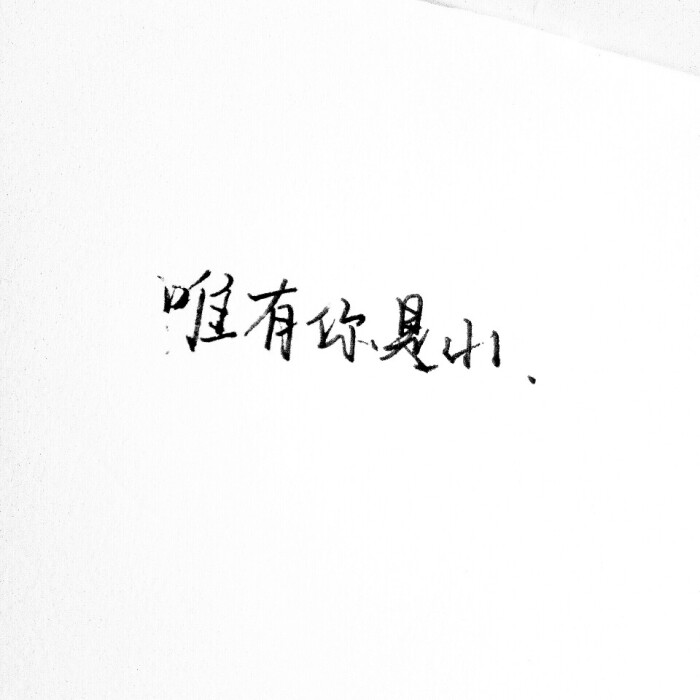 唯有你是山.